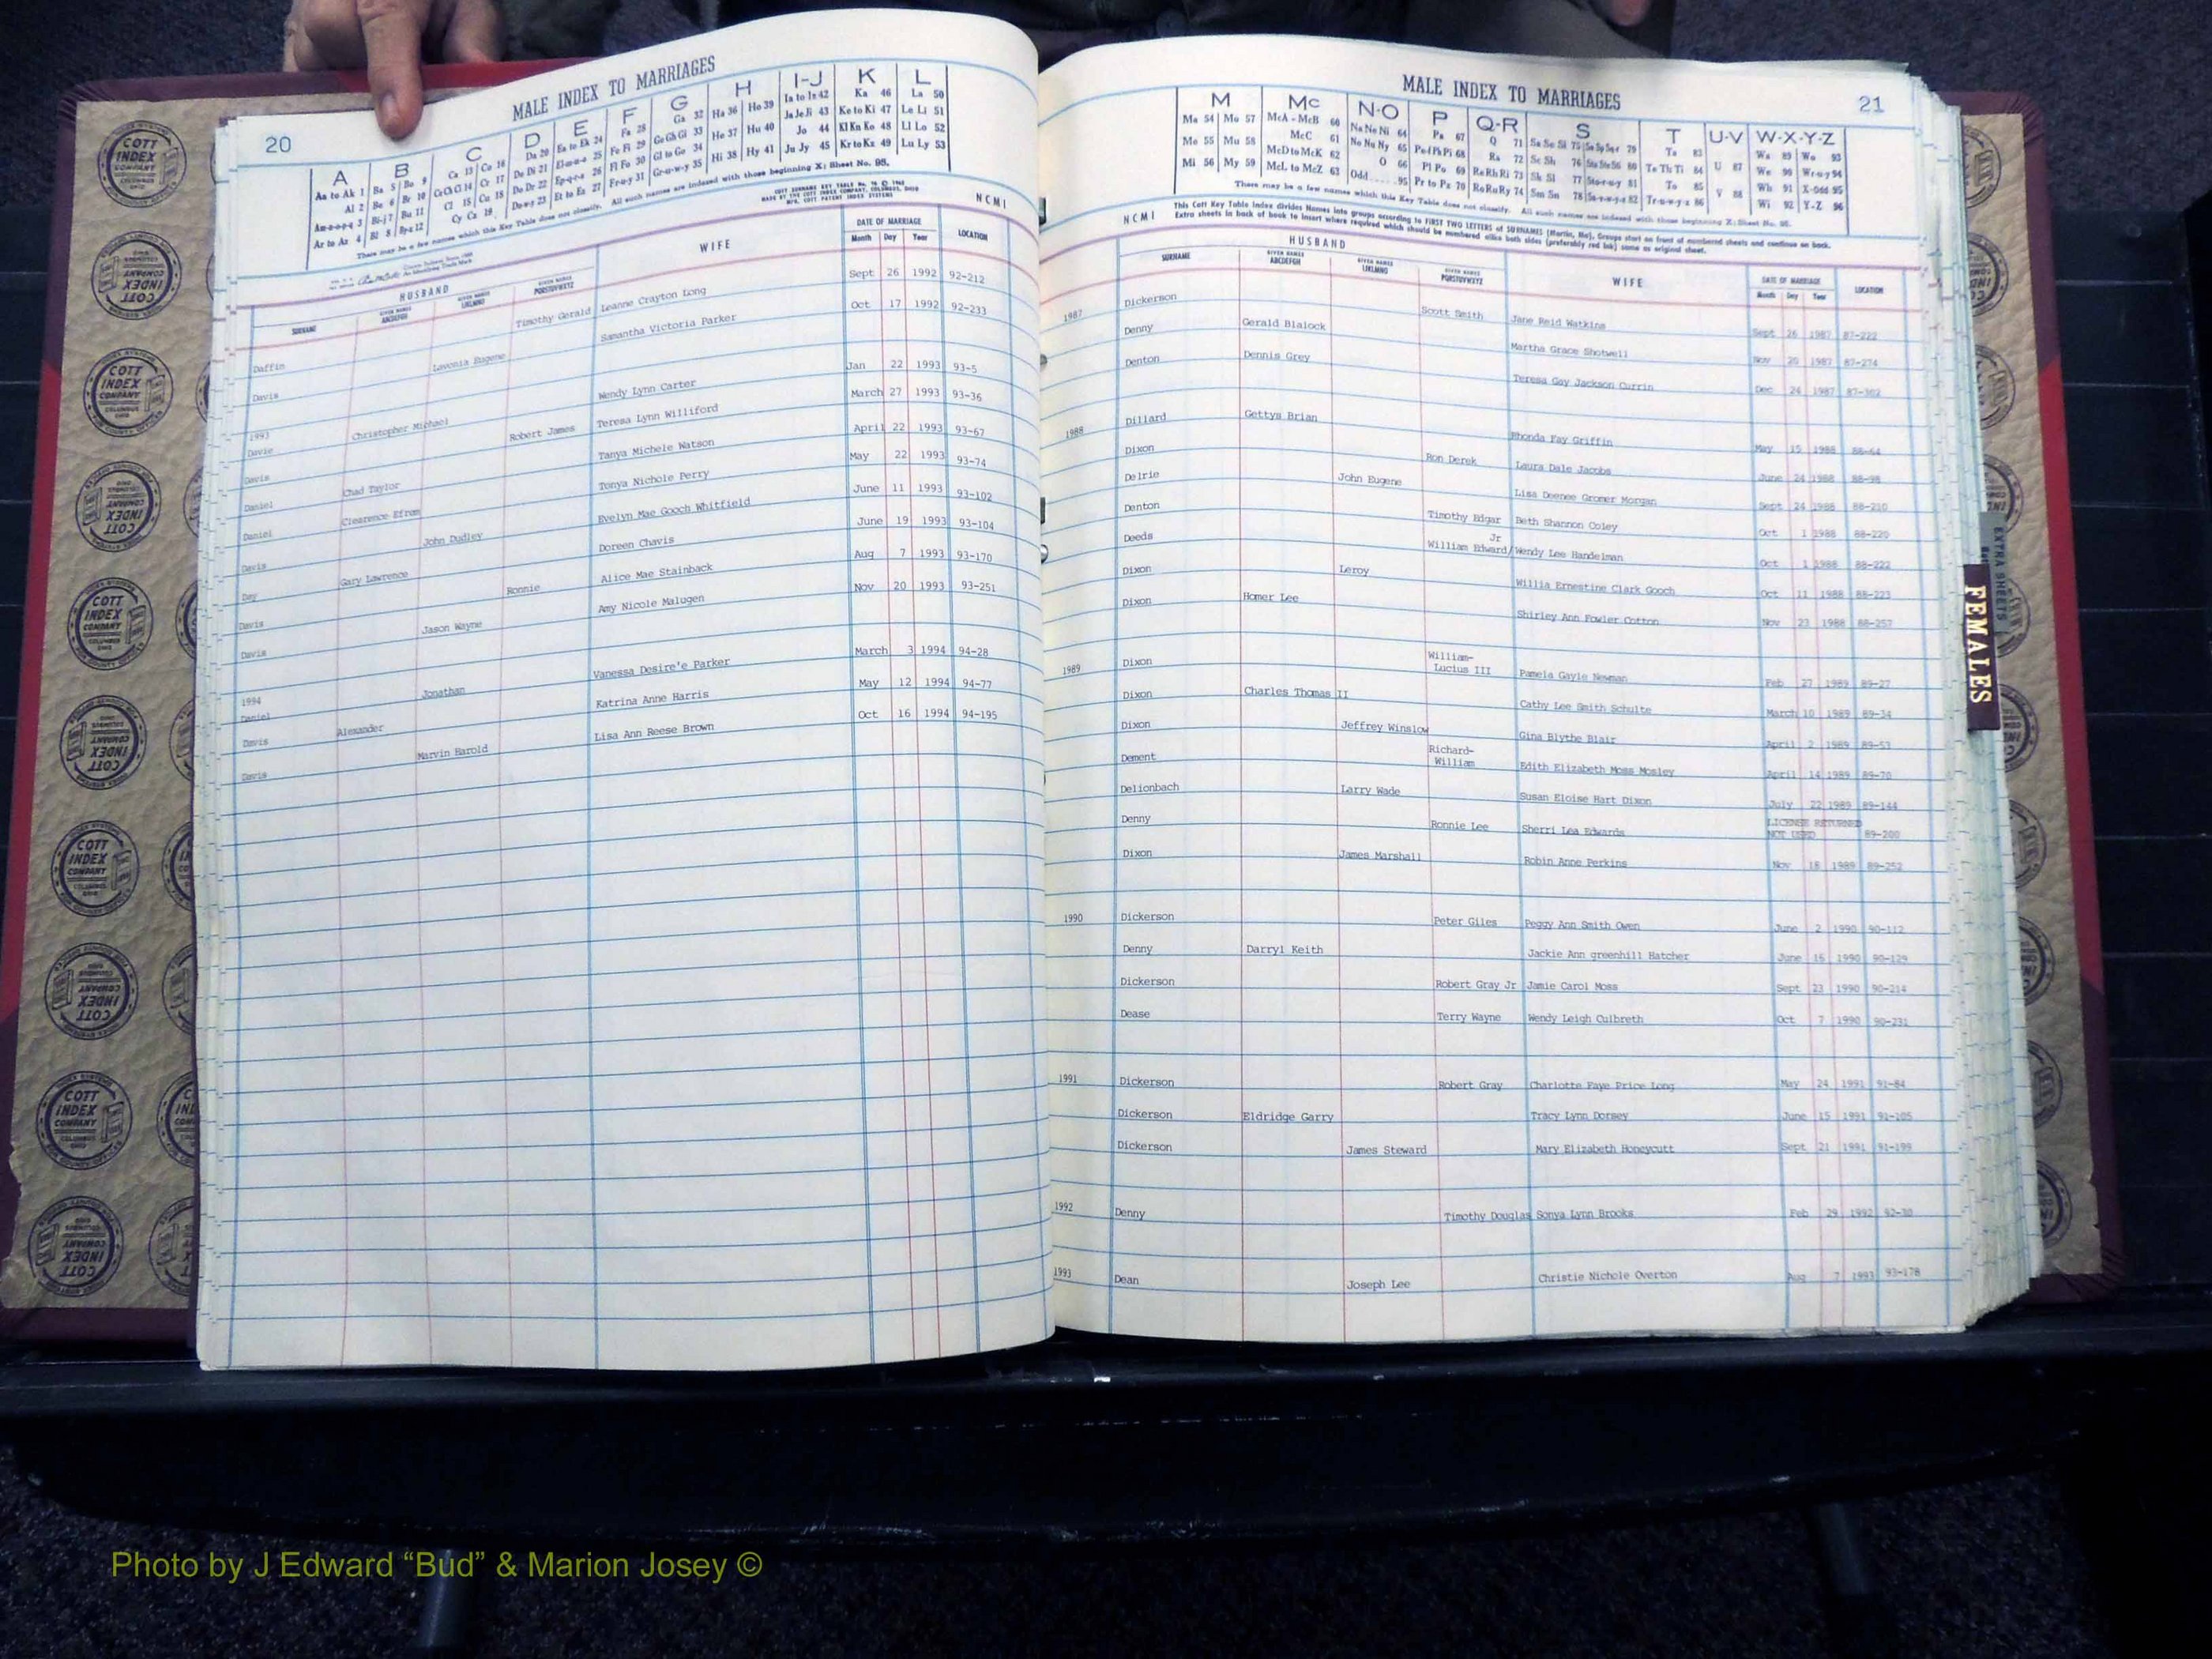 20
MALE INDEX TO MARRIAGES
A B C D E F G H I-J K L
Aa to Ak 1 Ba 5 Be 9 Ca 13 Co 16 Da 20 Ea to Ek 24 Fa 28 Ga 32 Ha 36 Ho 39 Ia to Iz 42 Ka 46 La 50
Al 2 Br 10 Cr 17 Fe Fi 29 Ge Gh Gi 33 He 37 Hu 40 Ja Je Ji 43 Ke to Ki 47 Le Li 51
Bu 11 Cl 15 Cu 18 De Dr 22 Fl Fo 30 Gl to Go 34 Hi 38 Hy 41 Jo 44 Kl Kn Ko 48 Ll Lo 52
Ar to Az 4 Bl 8 Cy Cz 19 Et to Ez 27 Ju Jy 45 Kr to Kz 49 Lu Ly 53
There may be a few names which this Key Table does not classify. All such names are indexed with those beginning X; Sheet No. 95.
NCMI
HUSBAND WIFE DATE OF MARRIAGE LOCATION
SURNAME Month Day Year
Daffin Timothy Gerald Leanne Crayton Long Sept 26 1992 92-212
Davis Lavonia Eugene Samantha Victoria Parker Oct 17 1992 92-233
1993
Davie Christopher Michael Wendy Lynn Carter Jan 22 1993 93-5
Davis Robert James Teresa Lynn Williford March 27 1993 93-36
Daniel Chad Taylor Tanya Michele Watson April 22 1993 93-67
Daniel Clearence Efram Tonya Nichole Perry May 22 1993 93-74
Davis John Dudley Evelyn Mae Gooch Whitfield June 11 1993 93-102
Day Gary Lawrence Doreen Chavis June 19 1993 93-104
Davis Ronnie Alice Mae Stainback Aug 7 1993 93-170
Davis Jason Wayne Amy Nicole Malugen Nov 20 1993 93-251
1994
Daniel Jonathan Vanessa Desire'e Parker March 3 1994 94-28
Davis Alexander Katrina Anne Harris May 12 1994 94-77
Davis Marvin Harold Lisa Ann Reese Brown Oct 16 1994 94-195
MALE INDEX TO MARRIAGES
21
M Mc N-O P Q-R S T U-V W-X-Y-Z
Ma 54 Mo 57 McA - McB 60 Na Ne Ni 64 Pa 67 Q 71 Sa Se Si 75 Ta 83 Wa 89 Wo 93
Me 55 Mu 58 McC 61 No Nu Ny 65 Pe Pf Ph Pi 68 Ra 72 Sc Sh 76 Te Th Ti 84 U 87 We 90 Wr-u-y 94
McD to McK 62 O 66 Pl Po 69 Re Rh Ri 73 Sk Sl 77 To 85 Wh 91 X-Odd 95
Mi 56 My 59 McL to McZ 63 Odd.....95 Pr to Pz 70 Ro Ru Ry 74 Sm Sn 78 Tr-u-w-y-z 86 V 88 Wi 92 Y-Z 96
There may be a few names which this Key Table does not classify. All such names are indexed with those beginning X; Sheet No. 95.
NCMI
This Cott Key Table Index divides Names into groups according to FIRST TWO LETTERS of SURNAMES (Martin, Ma). Groups start on front of numbered sheets and continue on back.
Extra sheets in back of book to insert where required which should be numbered alike both sides (preferably red ink) same as original sheet.
HUSBAND WIFE DATE OF MARRIAGE LOCATION
SURNAME Month Day Year
1987 Dickerson Scott Smith Jane Reid Watkins Sept 26 1987 87-222
Denny Gerald Blalock Martha Grace Shotwell Nov 20 1987 87-274
Denton Dennis Grey Teresa Gay Jackson Currin Dec 24 1987 87-302
1988 Dillard Gettys Brian Rhonda Fay Griffin May 15 1988 88-64
Dixon Ron Derek Laura Dale Jacobs June 24 1988 88-98
Delrie John Eugene Lisa Deenee Groner Morgan Sept 24 1988 88-210
Denton Timothy Edgar Beth Shannon Coley Oct 1 1988 88-220
Deeds William Edward/Jr Wendy Lee Handelman Oct 1 1988 88-222
Dixon Leroy Willia Ernestine Clark Gooch Oct 11 1988 88-223
Dixon Homer Lee Shirley Ann Fowler Cotton Nov 23 1988 88-257
1989 Dixon William-Lucius III Pamela Gayle Newman Feb 27 1989 89-27
Dixon Charles Thomas II Cathy Lee Smith Schulte March 10 1989 89-34
Dixon Jeffrey Winslow Gina Blythe Blair April 2 1989 89-53
Dement Richard-William Edith Elizabeth Moss Mosley April 14 1989 89-70
Delionbach Larry Wade Susan Eloise Hart Dixon July 22 1989 89-144
Denny Ronnie Lee Sherri Lea Edwards LICENSE RETURNED NOT USED 89-200
Dixon James Marshall Robin Anne Perkins Nov 18 1989 89-252
1990 Dickerson Peter Giles Peggy Ann Smith Owen June 2 1990 90-112
Denny Darryl Keith Jackie Ann greenhill Hatcher June 16 1990 90-129
Dickerson Robert Gray Jr Jamie Carol Moss Sept 23 1990 90-214
Dease Terry Wayne Wendy Leigh Culbreth Oct 7 1990 90-231
1991 Dickerson Robert Gray Charlotte Faye Price Long May 24 1991 91-84
Dickerson Eldridge Garry Tracy Lynn Dorsey June 15 1991 91-105
Dickerson James Steward Mary Elizabeth Honeycutt Sept 21 1991 91-199
1992 Denny Timothy Douglas Sonya Lynn Brooks Feb 29 1992 92-30
1993 Dean Joseph Lee Christie Nichole Overton Aug 7 1993 93-178
EXTRA SHEETS
FEMALES
COTT INDEX COMPANY
Photo by J Edward “Bud” & Marion Josey ©